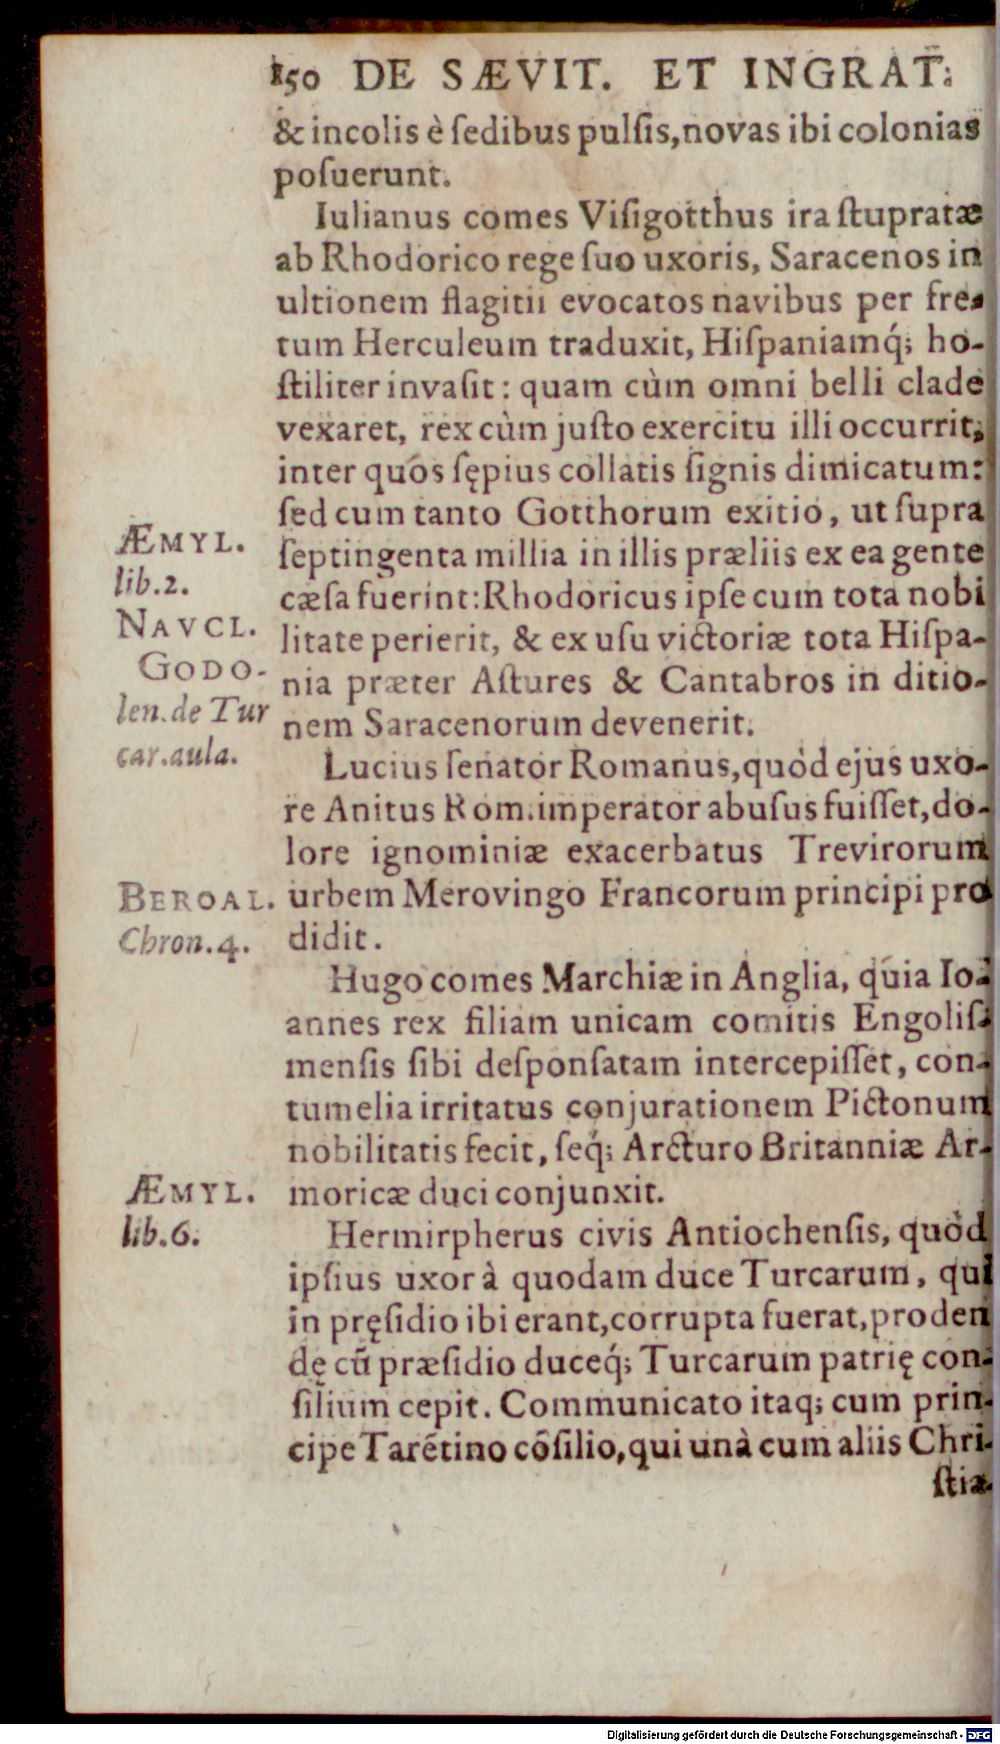 150 DE SÆVIT. ET INGRAT.
& incolis è ſedibus pulſis, novas ibi colonias
poſuerunt.
Iulianus comes Viſigotthus ira ſtupratæ
ab Rhodorico rege ſuo uxoris, Saracenos in
ultionem flagitii evocatos navibus per fre-
tum Herculeum traduxit, Hiſpaniamq́; ho-
ſtiliter invaſit: quam cùm omni belli clade
vexaret, rex cùm juſto exercitu illi occurrit,
inter quos ſępius collatis ſignis dimicatum:
ſed cum tanto Gotthorum exitio, ut ſupra
ÆMYL.
ſeptingenta millia in illis præliis ex ea gente
lib.2.
cæſa fuerint: Rhodoricus ipſe cum tota nobi
NAVCL.
litate perierit, & ex uſu victoriæ tota Hiſpa-
GODO-
nia præter Aſtures & Cantabros in ditio-
len. de Tur
nem Saracenorum devenerit.
car. aula.
Lucius ſenator Romanus, quòd ejus uxo-
re Anitus Rom. imperator abuſus fuiſſet, do-
lore ignominiæ exacerbatus Trevirorum
BEROAL.
urbem Merovingo Francorum principi pro
Chron. 4.
didit.
Hugo comes Marchiæ in Anglia, quia Io-
annes rex filiam unicam comitis Engoliſ-
menſis ſibi deſponſatam intercepiſſet, con-
tumelia irritatus conjurationem Pictonum
nobilitatis fecit, ſeq́; Arcturo Britanniæ Ar-
ÆMYL.
moricæ duci conjunxit.
lib.6.
Hermirpherus civis Antiochenſis, quòd
ipſius uxor à quodam duce Turcarum, qui
in pręſidio ibi erant, corrupta fuerat, proden
dę cū præſidio duceq́; Turcarum patrię con-
ſilium cepit. Communicato itaq; cum prin-
cipe Tarētino cōſilio, qui unà cum aliis Chri-
ſtia-
Digitalisierung gefördert durch die Deutsche Forschungsgemeinschaft - DFG